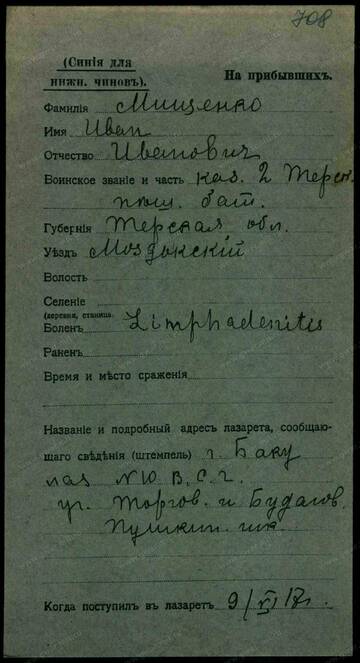 708
(Синія для
нижн. чиновъ).
На прибывшихъ.
Фамилія Мищенко
Имя Иван
Отчество Иванович
Воинское званіе и часть каз. 2 Терск.
плаш. бат.
Губернія Терская обл.
Уѣздъ Моздокскій
Волость
Селеніе
(деревня, станица
Боленъ Limphadenitis
Раненъ
Время и мѣсто сраженія
Названіе и подробный адресъ лазарета, сообщаю-
щаго свѣдѣнія (штемпель) г. Баку
лаз N10 В. С. Г.
уг. Торгов. и Будагов.
Пушкин. шк.
Когда поступилъ въ лазаретъ 9/VI 17г.